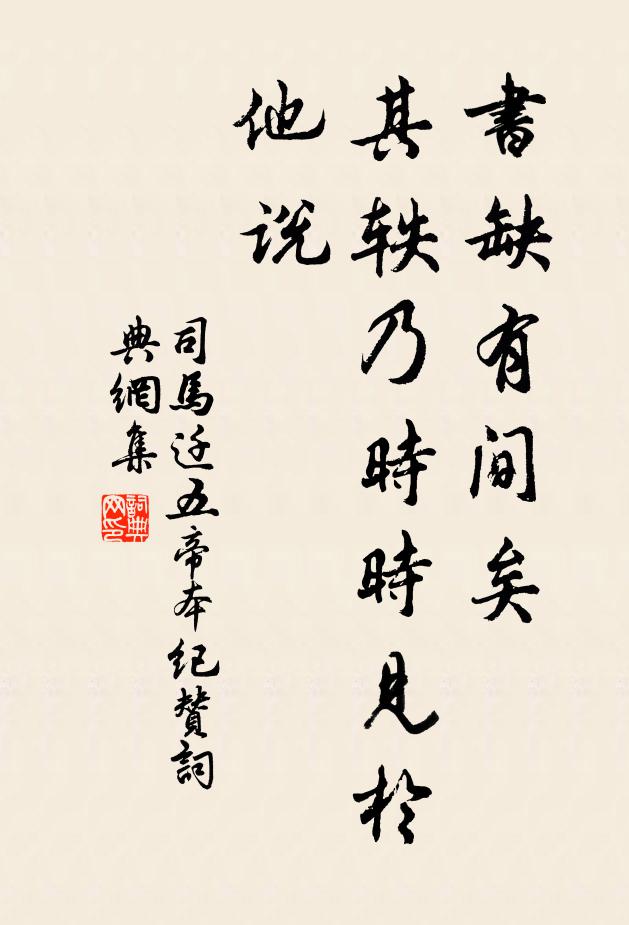 書缺有间矣
其轶乃時時見於
他说
司馬迁五帝本纪贊詞
典網集
詞典网印